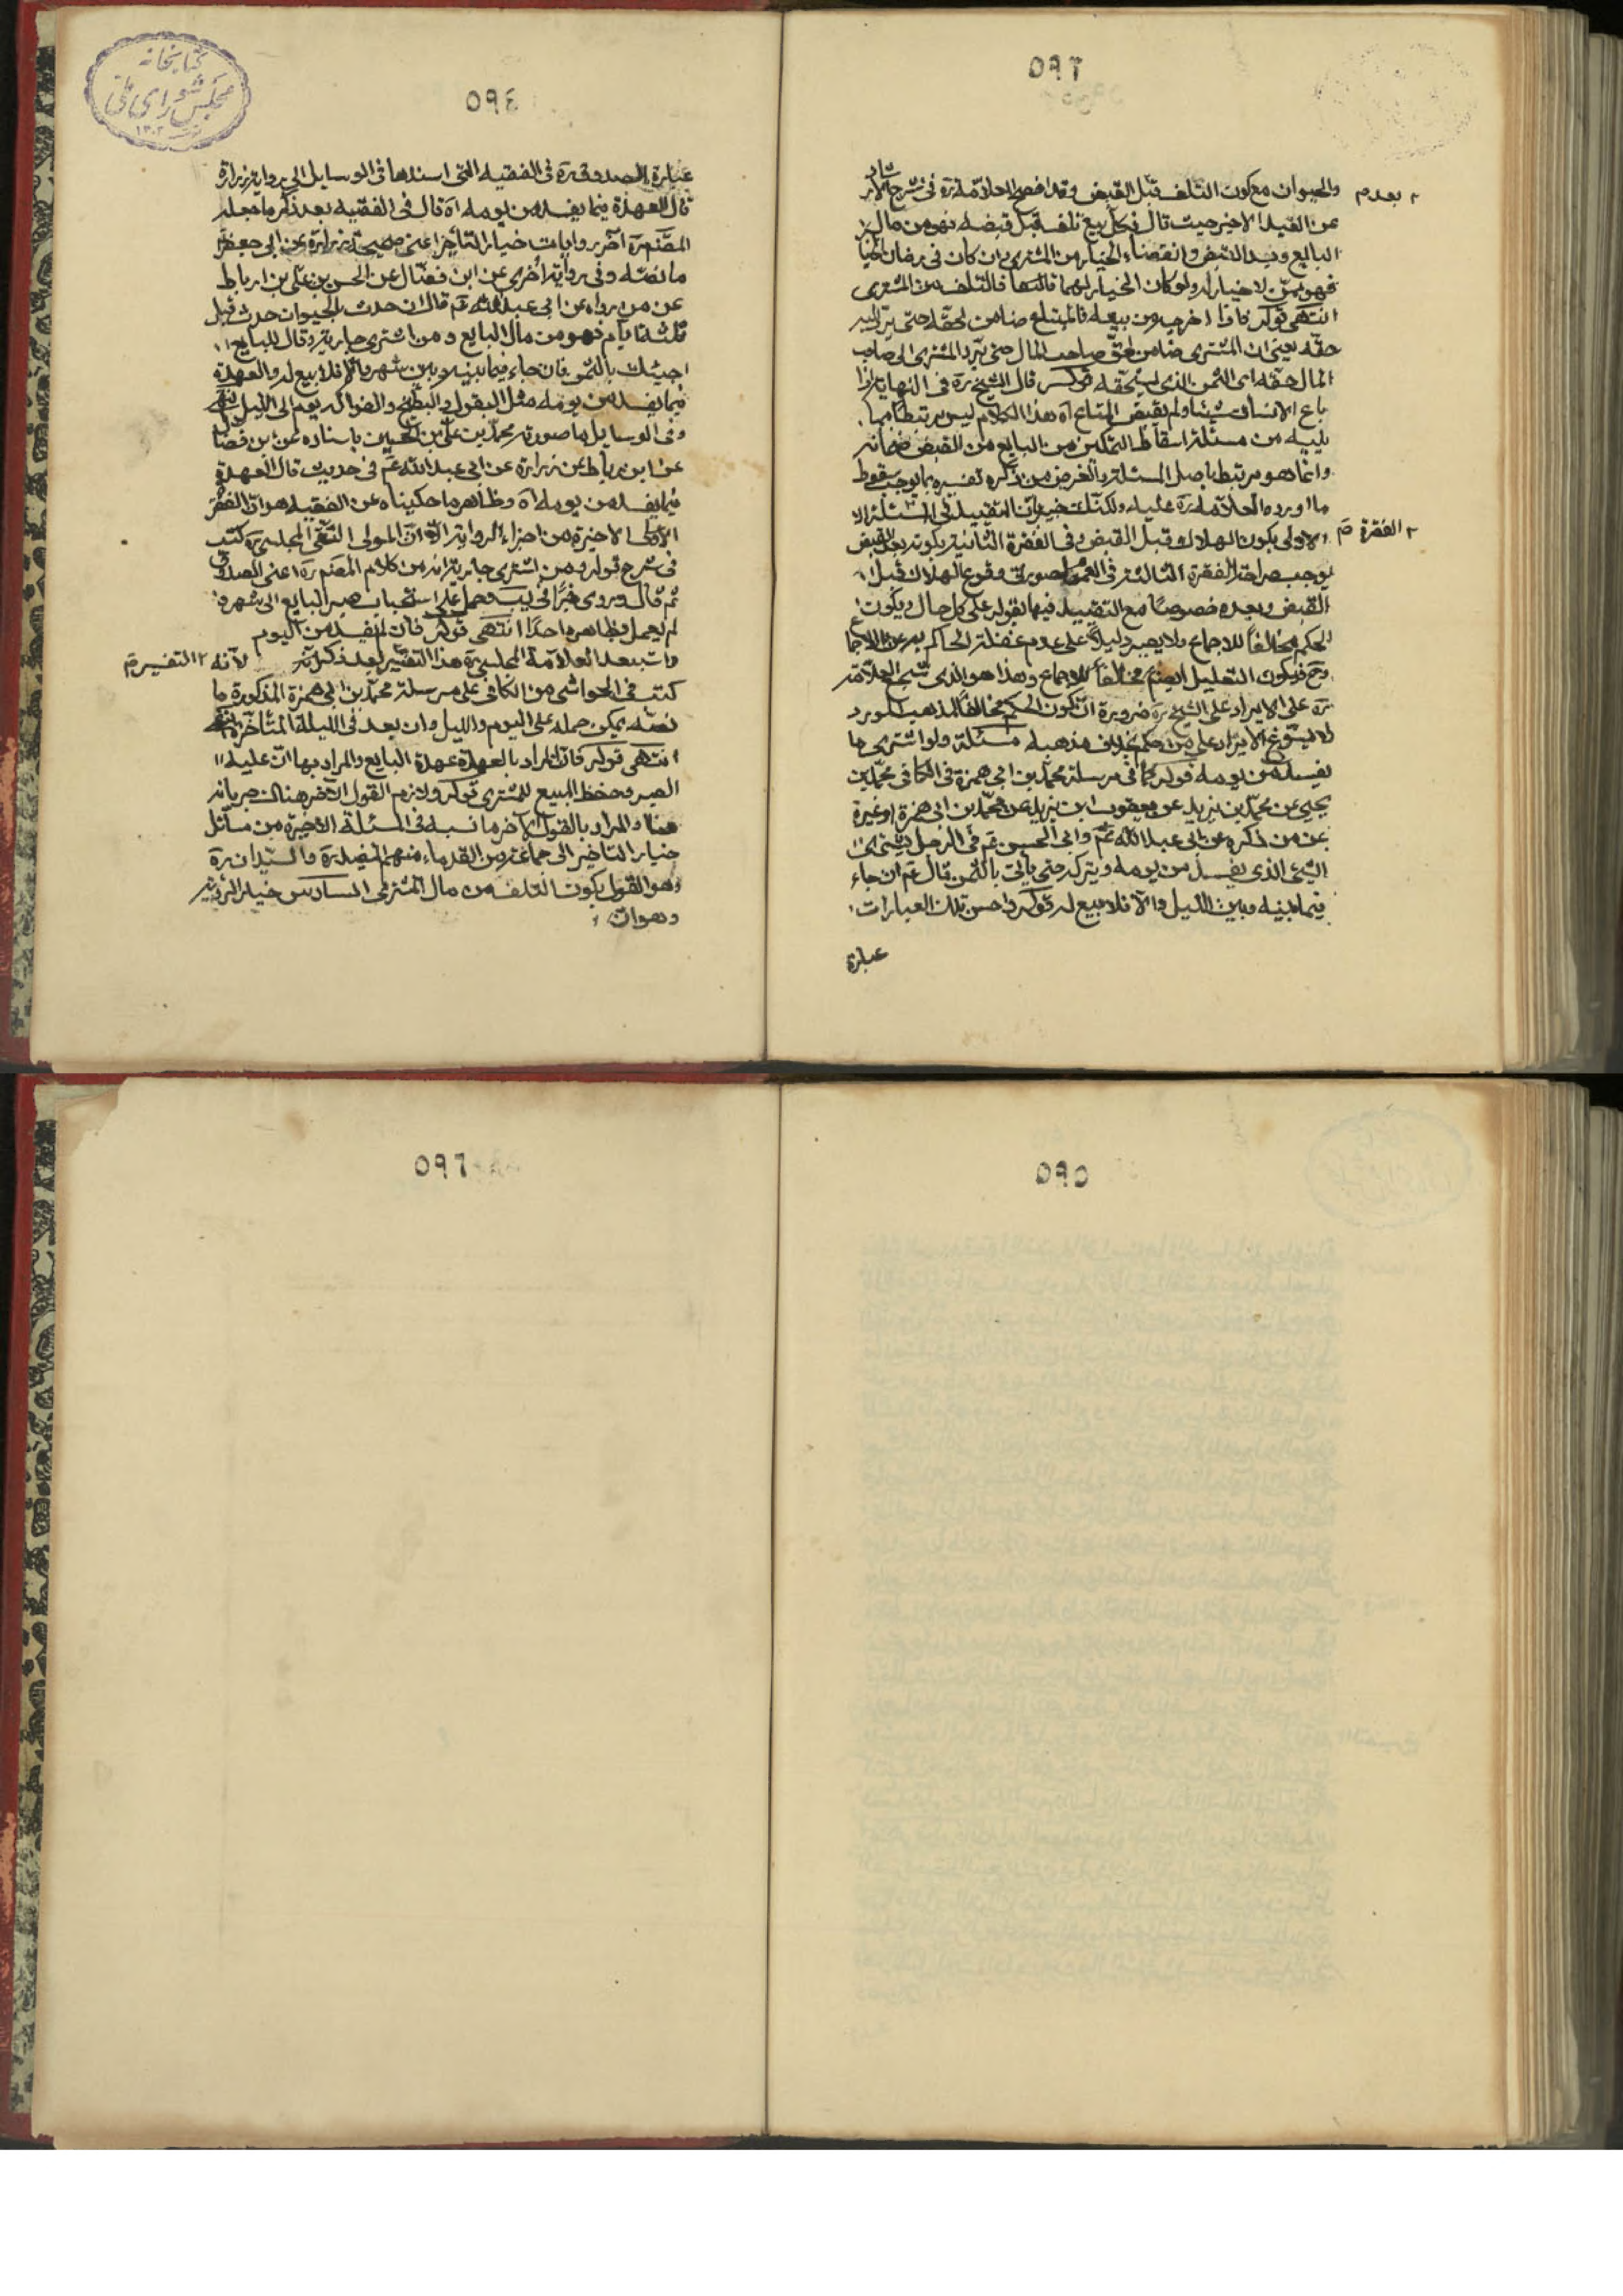 ٥٩٣
والحيوان مع كون التلف قبل القبض وقد افصح العلامة ره فى شرح الارشاد
٢ بعدم
عن القيد الاخير حيث قال فكل بيع تلف قبل قبضه فهو من مال
البايع وبعد القبض وانقضاء الخيار من المشترى وان كان فى زمان الخيار
فهو ممن لا خيار له ولو كان الخيار لهما فالتلف من المشترى
انتهى قوله فاذا اخرجه من بيته فالمبتاع ضامن لحقه حتى يرد اليه
حقه يعنى ان المشترى ضامن لحق صاحب المال حتى يرد المشترى الى صاحب
المال حقه اى الثمن الذى يستحقه قوله قال الشيخ ره فى النهاية اذا
باع الانسان شيئا ولم يقبض المتاع اه هذا الكلام ليس مرتبطا بما
يليه من مسئلة اسقاط التمكين من البايع من القبض ضمانه
وانما هو مرتبط باصل المسئلة والغرض من ذكره تفسيره بما يوجب سقوط
ما اورده العلامة ره عليه ولكنك خبير بان التقييد فى المسئلة
الاولى بكون الهلاك قبل القبض وفى الفقرة الثانية بكونه بعد القبض
٢ الفقرة م
يوجب صراحة الفقرة الثالثة فى العموم لصورتى وقوع الهلاك قبل
القبض وبعده خصوصا مع التقييد فيها بقوله على كل حال ويكون
الحكم مخالفا للاجماع ولا يصير دليلا على عدم غفلة الحاكم به عن الاجماع
وح فيكون التعليل ايضا مخالفا للاجماع وهذا هو الذى شجع العلامة
ره على الايراد على الشيخ ره ضرورة ان كون الحكم مخالفا لمذهب المورد
لا يسوغ الايراد على من حكم بخلاف مذهبه مسئلة ولو اشترى ما
يفسد من يومه قوله كما فى مرسلة محمد بن ابى حمزة فى الكافى محمد بن
يحيى عن محمد بن يزيد عن يعقوب ابن يزيد عن محمد بن ابى حمزة او غيره
عن من ذكره عن ابى عبد الله ع وابى الحسن ع فى الرجل يشترى
الشئ الذى يفسد من يومه ويتركه حتى ياتى بالثمن قال ع ان جاء
فيما بينه وبين الليل والا فلا بيع له قوله واحسن تلك العبارات
عبارة
٥٩٤
كتابخانه مجلس شوراى ملى
عبارة الصدوق ره فى الفقيه التى اسندها فى الوسايل الى رواية زرارة
قال العهدة فيما يفسد من يومه اه قال فى الفقيه بعد ذكر ما جعله
المصنف ره آخر روايات خيار التأخير اعنى صحيحة زرارة عن ابى جعفر
ما نصه وفى رواية اخرى عن ابن فضال عن الحسن بن على بن رباط
عن من رواه عن ابى عبد الله ع قال ان حدث بالحيوان حدث قبل
ثلثة ايام فهو من مال البايع ومن اشترى جارية وقال للبايع
اجيئك بالثمن فان جاء فيما بينه وبين شهر والا فلا بيع له والعهدة
فيما يفسد من يومه مثل البقول والبطيخ والفواكه يوم الى الليل انتهى
وفى الوسايل ما صورته محمد بن على بن الحسين باسناده عن ابن فضال
عن ابن رباط عن زرارة عن ابى عبد الله ع فى حديث قال العهدة
فيما يفسد من يومه اه وظاهر ما حكيناه عن الفقيه هو ان الفقرة
الاخيرة من اجزاء الرواية الا ان المولى التقى المجلسى ره كتب
فى شرح قوله ومن اشترى جارية انه من كلام المصنف ره اعنى الصدوق
ثم قال وروى خبرا فى يب وحمل على استحباب صبر البايع الى شهر و
لم يعمل بظاهره احد انتهى قوله فان المفيد من اليوم
واستبعد العلامة المجلسى ره هذا التفسير بعد ذكره لانه
٢ التفسير م
كتب فى الحواشى من الكافى على مرسلة محمد بن ابى حمزة المذكورة ما
نصه يمكن حمله على اليوم والليل وان يعد فى الليلة المتأخرة
انتهى قوله فان المراد بالعهدة عهدة البايع والمراد بها ان عليه
الصبر وحفظ المبيع للمشترى قوله ولازم القول الآخر هناك جريانه
هنا والمراد بالقول الآخر ما نسبه فى المسئلة الاخيرة من مسائل
خيار التاخير الى جماعة من القدماء منهم المفيد ره والسيدان ره
وهو القول بكون التلف من مال المشترى السادس خيار الرؤية
وهو ان
٥٩٥
٥٩٦